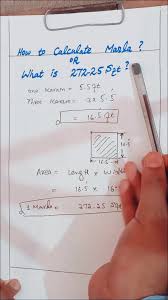 How to Calculate Marla ?
OR
What is 272.25 Sft ?
One Karam = 5.5ft
Three Karam = 3 x 5.5
= 16.5 ft
16.5
16.5
Area = Length x Width
= 16.5 x 16
1 Marla = 272.25 Sft